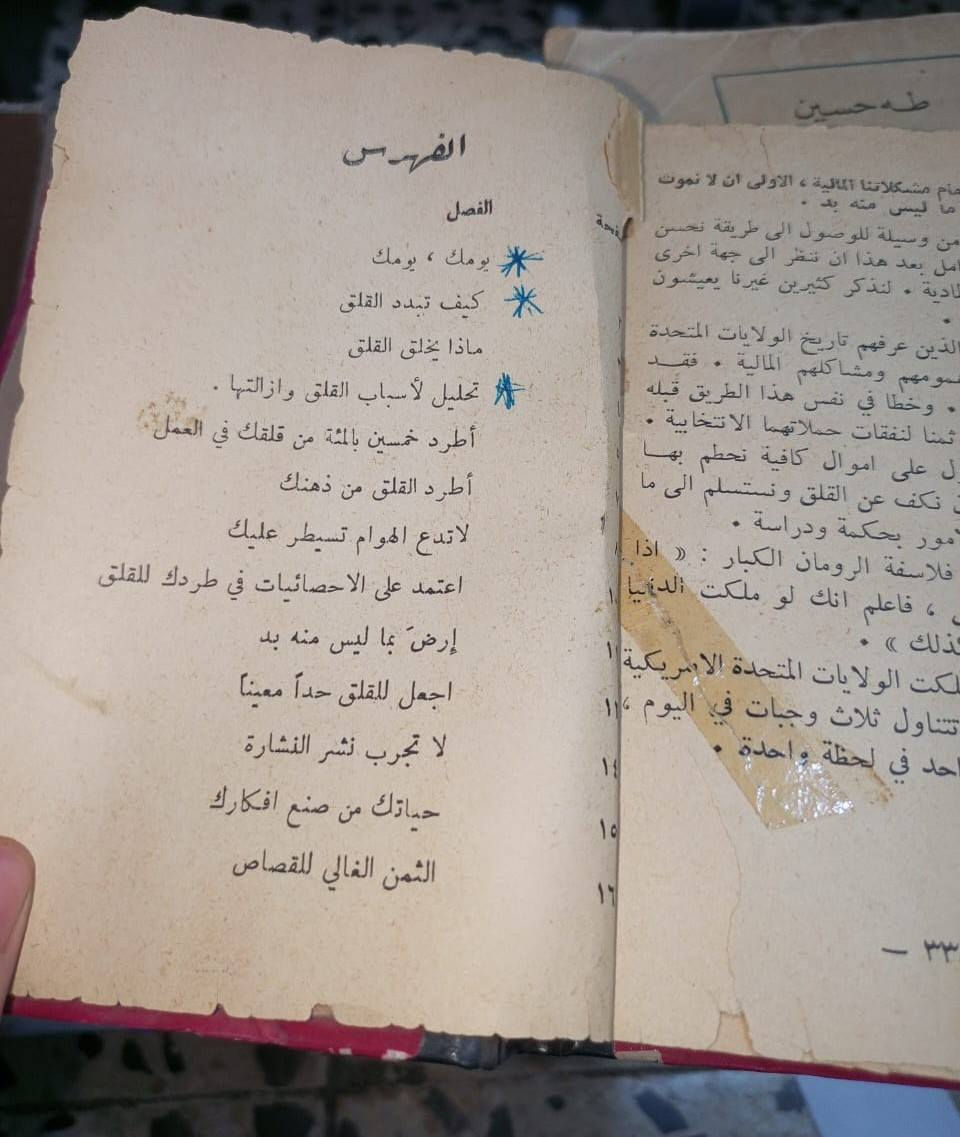 طه حسين
الفهرس
الفصل
يومك ، يومك
كيف تبدد القلق
ماذا يخلق القلق
تحليل لأسباب القلق وازالتها .
أطرد خمسين بالمئة من قلقك في العمل
أطرد القلق من ذهنك
لاتدع الهوام تسيطر عليك
اعتمد على الاحصائيات في طردك للقلق
إرضَ بما ليس منه بد
اجعل للقلق حداً معيناً
لا تجرب نشر النشارة
حياتك من صنع افكارك
الثمن الغالي للقصاص
١٤
١٥
١٦
مشكلاتنا المالية ، الاولى ان لا نموت
ما ليس منه بد .
من وسيلة للوصول الى طريقة نحسن
بعد هذا ان ننظر الى جهة اخرى
لنذكر كثيرين غيرنا يعيشون
الذين عرفهم تاريخ الولايات المتحدة
ومشاكلهم المالية . فقد
. وخطا في نفس هذا الطريق قبله
ثمنا لنفقات حملاتهما الانتخابية .
على اموال كافية نحطم بها
نكف عن القلق ونستسلم الى ما
بحكمة ودراسة .
فلاسفة الرومان الكبار : « اذا
، فاعلم انك لو ملكت الدنيا
» .
الولايات المتحدة الاميريكية
تتناول ثلاث وجبات في اليوم ،
في لحظة واحدة .